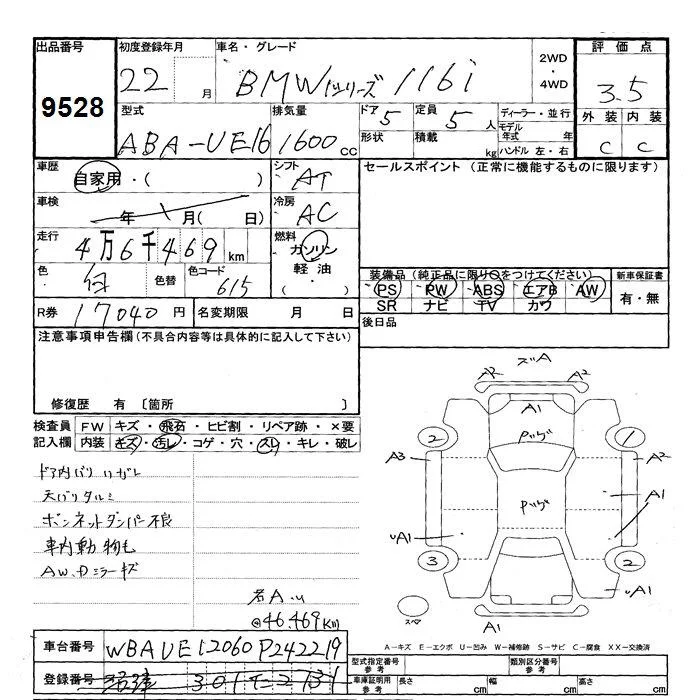 出品番号 初度登録年月 車名・グレード 2WD ・ 4WD 評価点
9528 22 月 BMW 1シリーズ 116i 3.5
型式 排気量 ドア 5 定員 5 人 ディーラー・並行 外装 内装
ABA-UE16 1600 cc 形状 積載 kg モデル年式 年 C C
ハンドル 左・右
車歴 自家用・( ) シフト AT セールスポイント (正常に機能するものに限ります)
車検 年 月( 日) 冷房 AC
走行 4万6千469 km 燃料 ガソリン
色 白 色替 色コード 615 軽油・( ) 装備品 (純正品に限り○をつけてください) 新車保証書
PS PW ABS エアB AW 有・無
R券 17040 円 名変期限 月 日 SR ナビ TV カワ
注意事項申告欄 (不具合内容等は具体的に記入して下さい) 後日品
修復歴 有 〔箇所 〕
検査員 FW キズ・飛石・ヒビ割・リペア跡・×要
記入欄 内装 キズ・汚レ・コゲ・穴・スレ・キレ・破レ
ドア内バリ ハガレ
天バリ タルミ
ボンネットダンパー不良
車内動物毛
AW、Dミラーキズ
@46,469km
ズA
A2 A2
A1
2 Pツゲ 1
A3 A2
Pツゲ A1
UA1
3 2
UA1
スペ A1
A-キズ E-エクボ U-凹み W-補修跡 S-サビ C-腐食 XX-交換済
車台番号 WBAUE12060P242219
登録番号 沼津 301
型式指定番号 参考 類別区分番号 参考
車庫証明用 参考 長さ cm 幅 cm 高さ cm